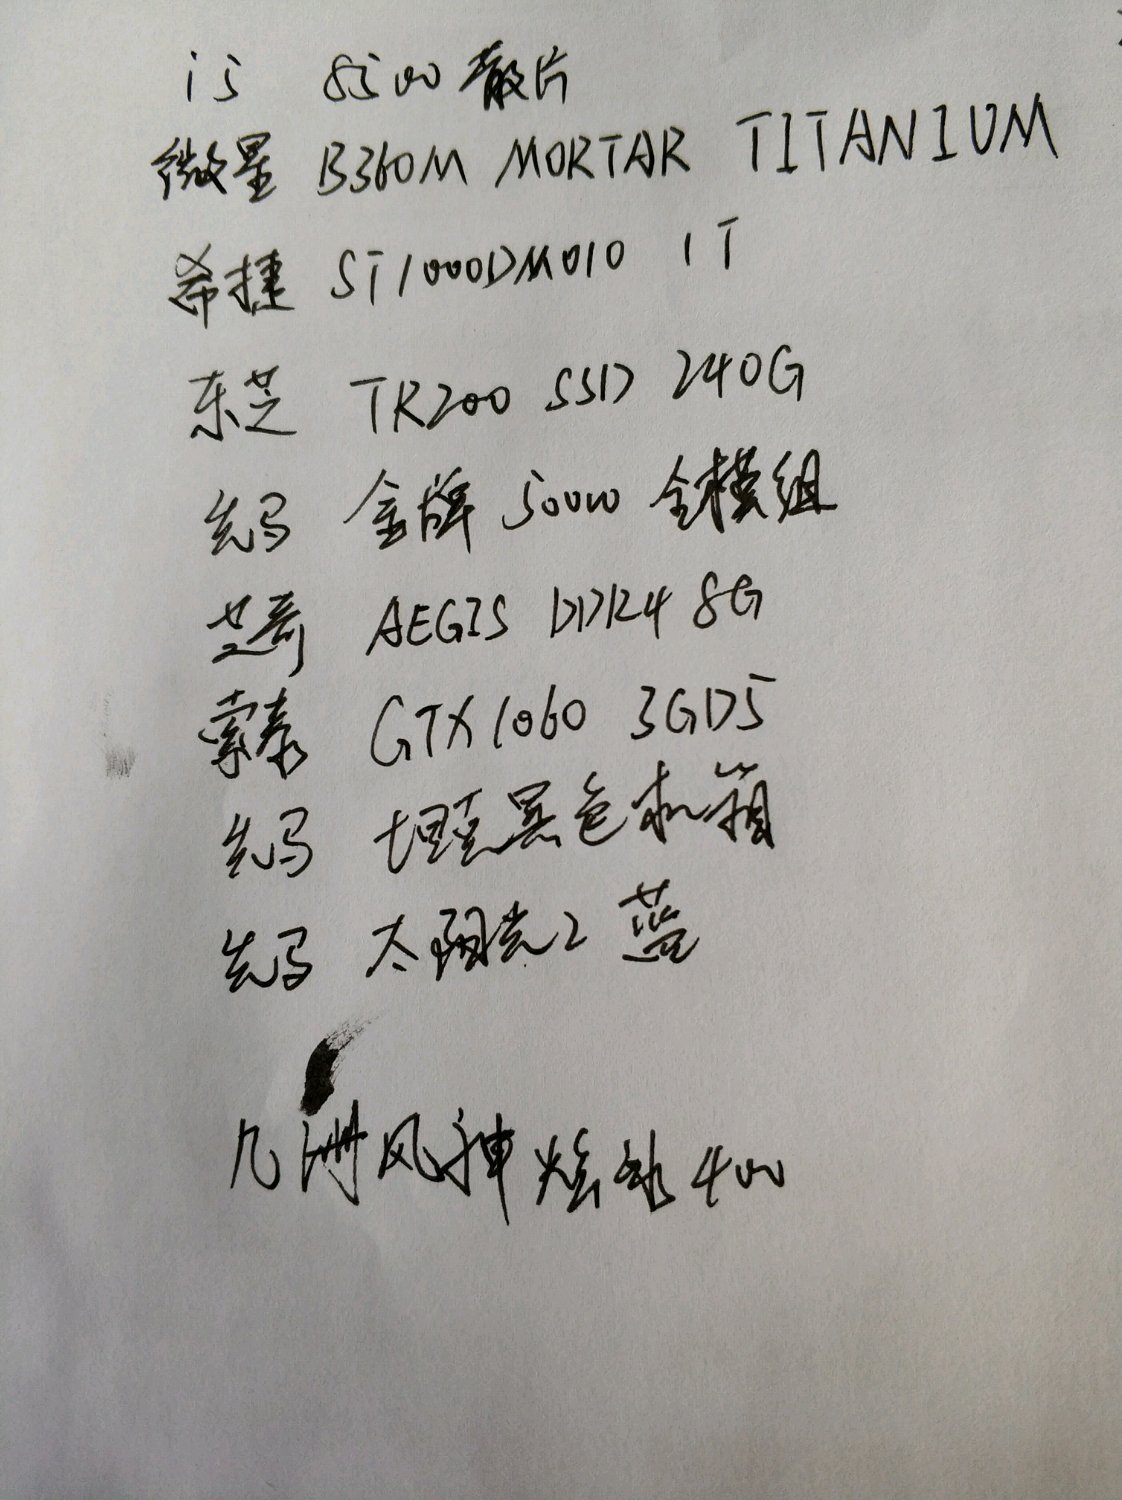 i5 8500散片
微星 B360M MORTAR TITANIUM
希捷 ST1000DM010 1T
东芝 TR200 SSD 240G
先马 金牌 500W 全模组
芝奇 AEGIS DDR4 8G
索泰 GTX1060 3GD5
先马 坦克黑色机箱
先马 太阳光2 蓝
九州风神 炫冰400